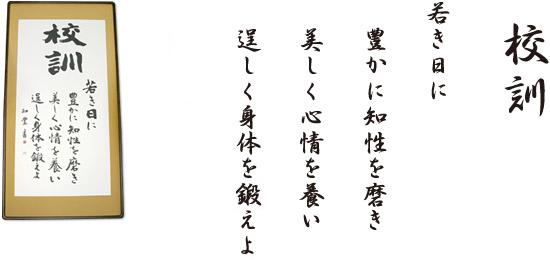 校訓
若き日に
豊かに知性を磨き
美しく心情を養い
逞しく身体を鍛えよ
校訓
若き日に
豊かに知性を磨き
美しく心情を養い
逞しく身体を鍛えよ